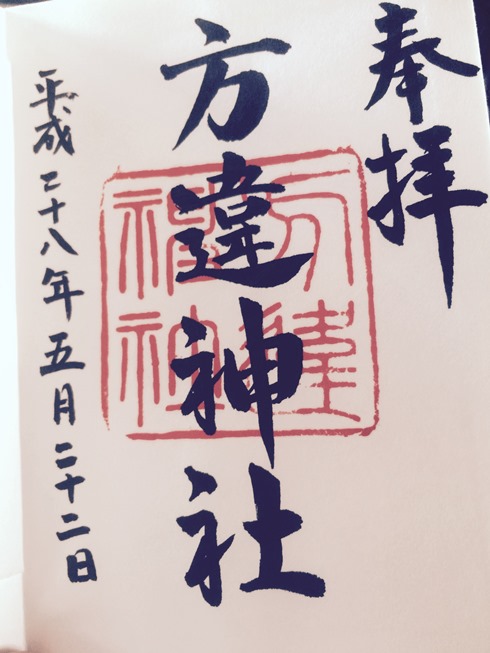 奉拝
方違神社
平成二十八年五月二十二日